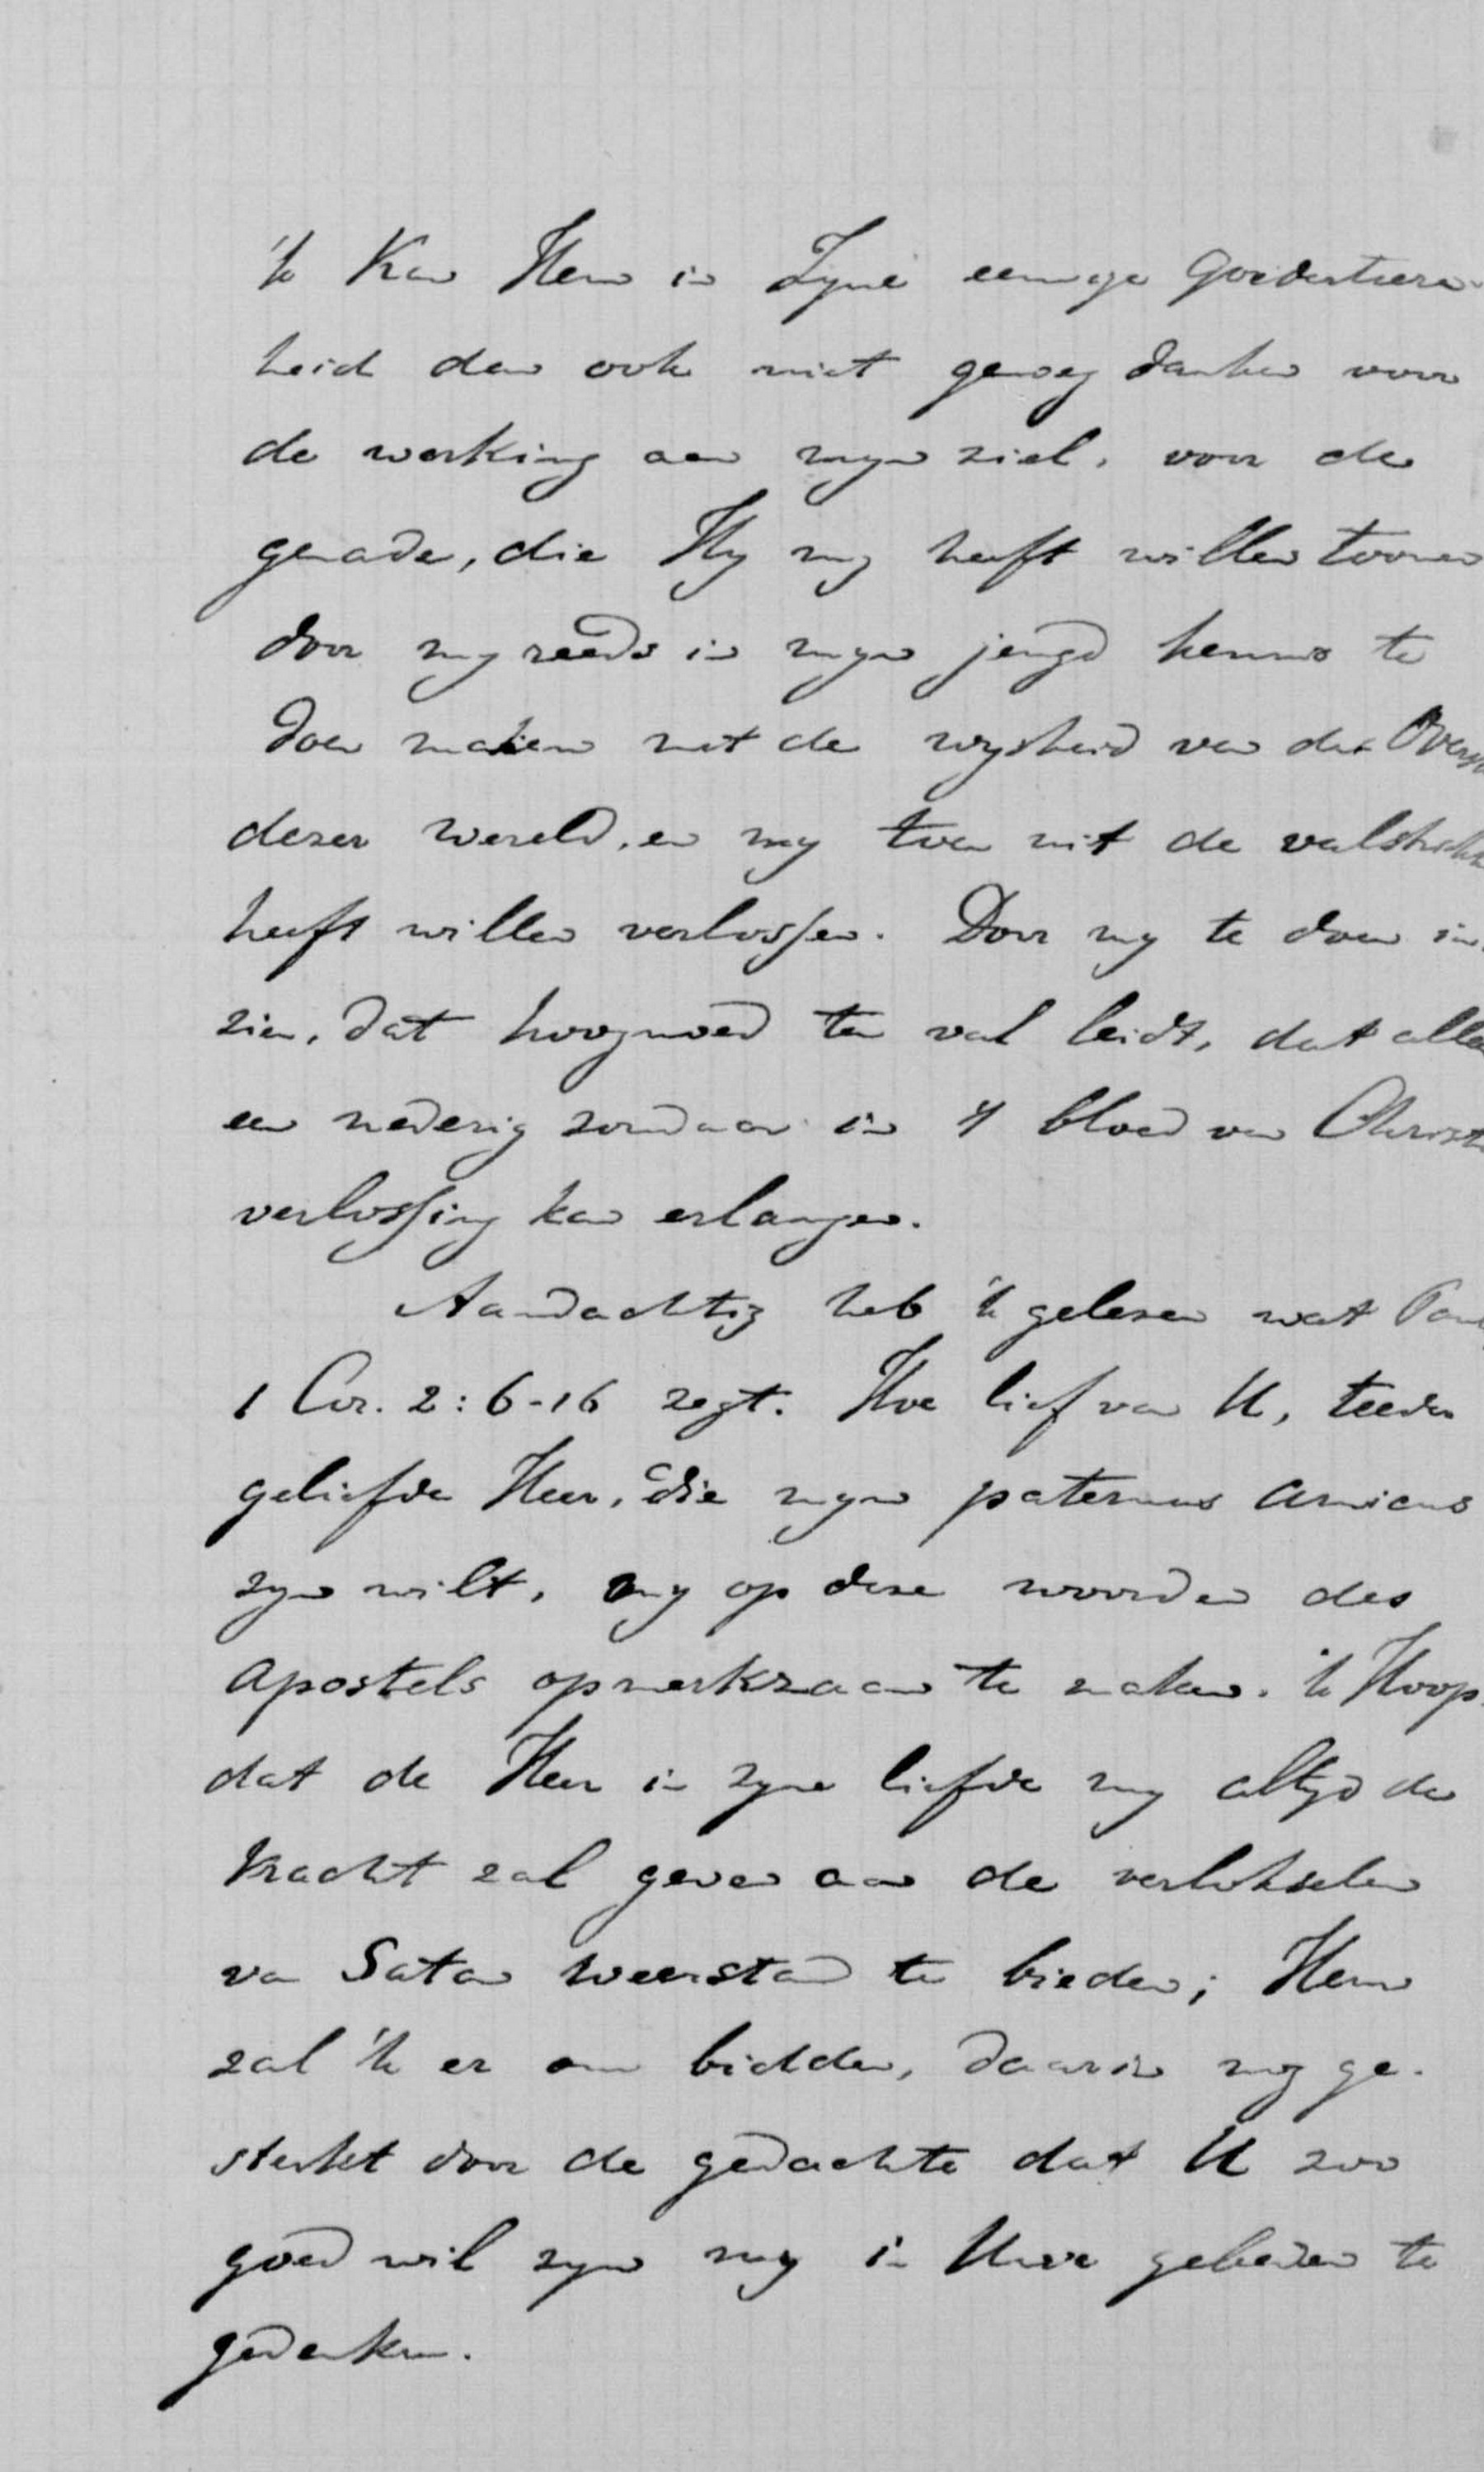 'k Kan Hem in Zyne eeuwige Goedertieren-
heid dan ook niet genoeg danken voor
de werking aan myn ziel, voor de
genade, die Hy my heeft willen toonen
door my reeds in myn jeugd kennis te
doen maken met de wysheid van den Overste
dezer wereld, en my toen uit de valstrikken
heeft willen verlossen. Door my te doen in-
zien, dat hoogmoed ten val leidt, dat alleen
een nederig zondaar in 't bloed van Christus
verlossing kan erlangen.
Aandachtig heb 'k gelezen wat Paulus
1 Cor. 2:6-16 zegt. Hoe lief van U, teeder
geliefde Heer, die myn paternus amicus
zyn wilt, my op deze woorden des
Apostels opmerkzaam te maken. 'k Hoop,
dat de Heer in zyne liefde my altyd de
kracht zal geven aan de verlokselen
van Satan weerstand te bieden; Hem
zal 'k er om bidden, daarin nog ge-
sterkt door de gedachte dat U zoo
goed wil zyn my in Uwe gebeden te
gedenken.